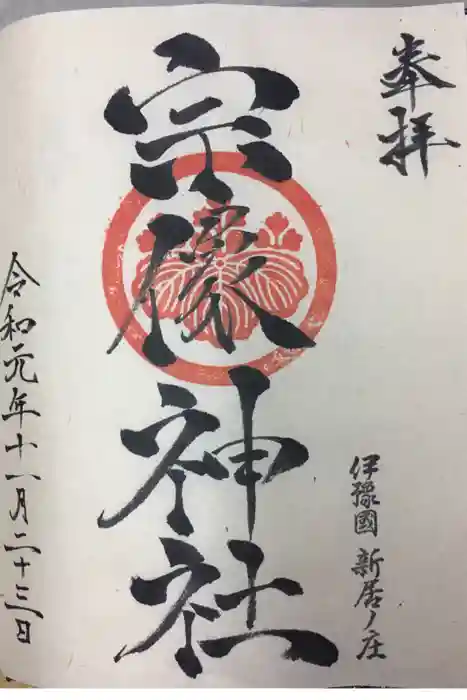 奉拝
伊豫國 新居ノ庄
宗像神社
令和元年十一月二十三日